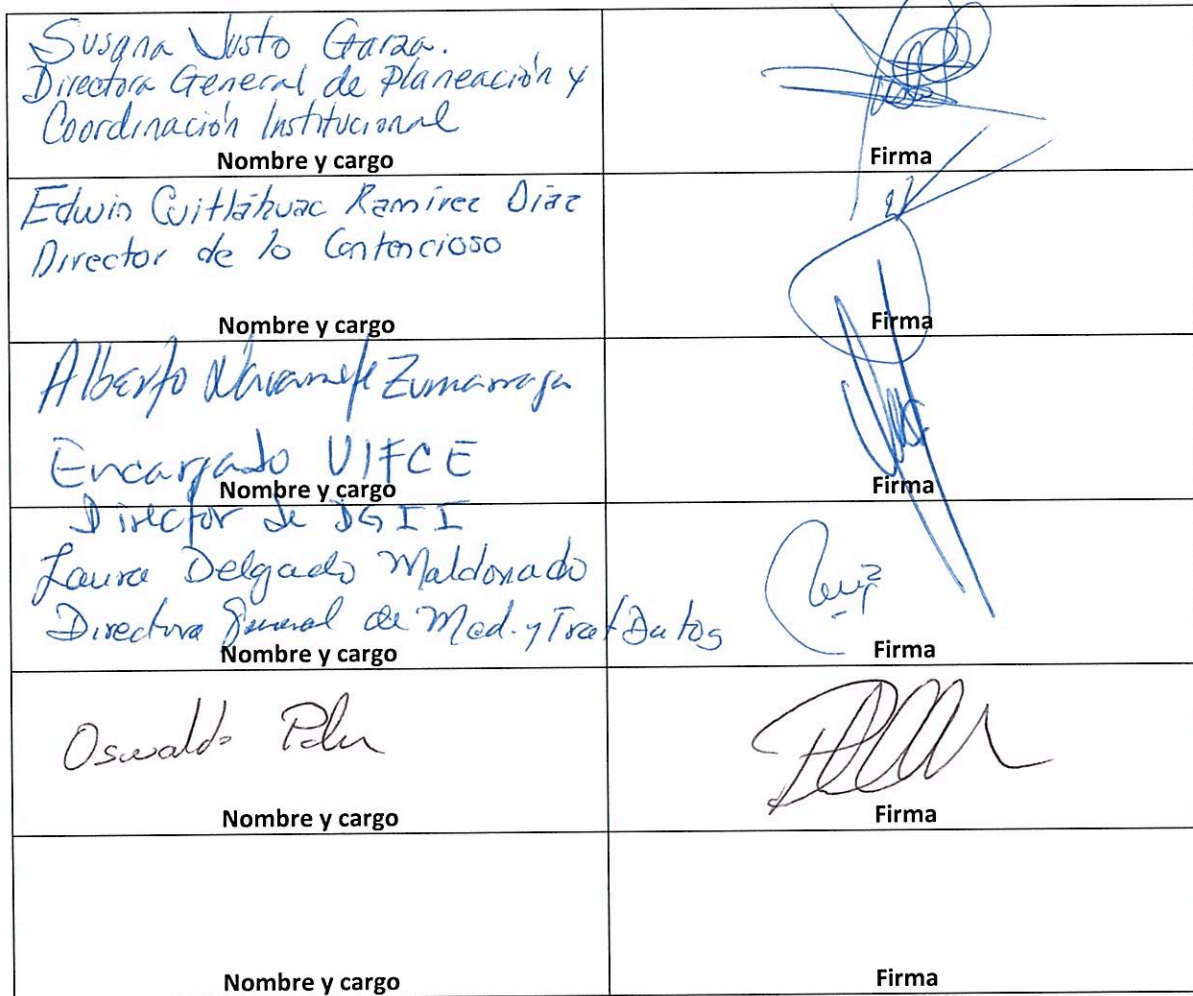 Susana Justo Garza.
Directora General de Planeación y
Coordinación Institucional
Nombre y cargo
Firma
Edwin Cuitláhuac Ramírez Díaz
Director de lo Contencioso
Nombre y cargo
Firma
Alberto Zumarraga
Encargado UIFCE
Nombre y cargo
Firma
Director de DGII
Laura Delgado Maldonado
Directora General de Med. y Trat Datos
Nombre y cargo
Firma
Oswaldo
Nombre y cargo
Firma
Nombre y cargo
Firma